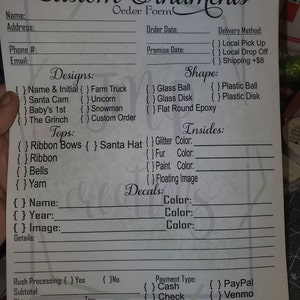 Custom Ornaments
Order Form
Name:
Address:
Order Date:
Delivery Method:
{ } Local Pick Up
{ } Local Drop Off
{ } Shipping +$8
Phone #:
Promise Date:
Email:
Designs:
{ } Name & Initial { } Farm Truck
{ } Santa Cam { } Unicorn
{ } Baby's 1st { } Snowman
{ } The Grinch { } Custom Order
Shape:
{ } Glass Ball { } Plastic Ball
{ } Glass Disk { } Plastic Disk
{ } Flat Round Epoxy
Tops:
{ } Ribbon Bows { } Santa Hat
{ } Ribbon
{ } Bells
{ } Yarn
Insides:
{ } Glitter Color:
{ } Fur Color:
{ } Paint Color:
{ } Floating Image
Decals:
{ } Name: Color:
{ } Year: Color:
{ } Image: Color:
Details:
Rush Processing: { } Yes { } No
Payment Type:
{ } Cash { } PayPal
{ } Check { } Venmo
Subtotal:
Tax